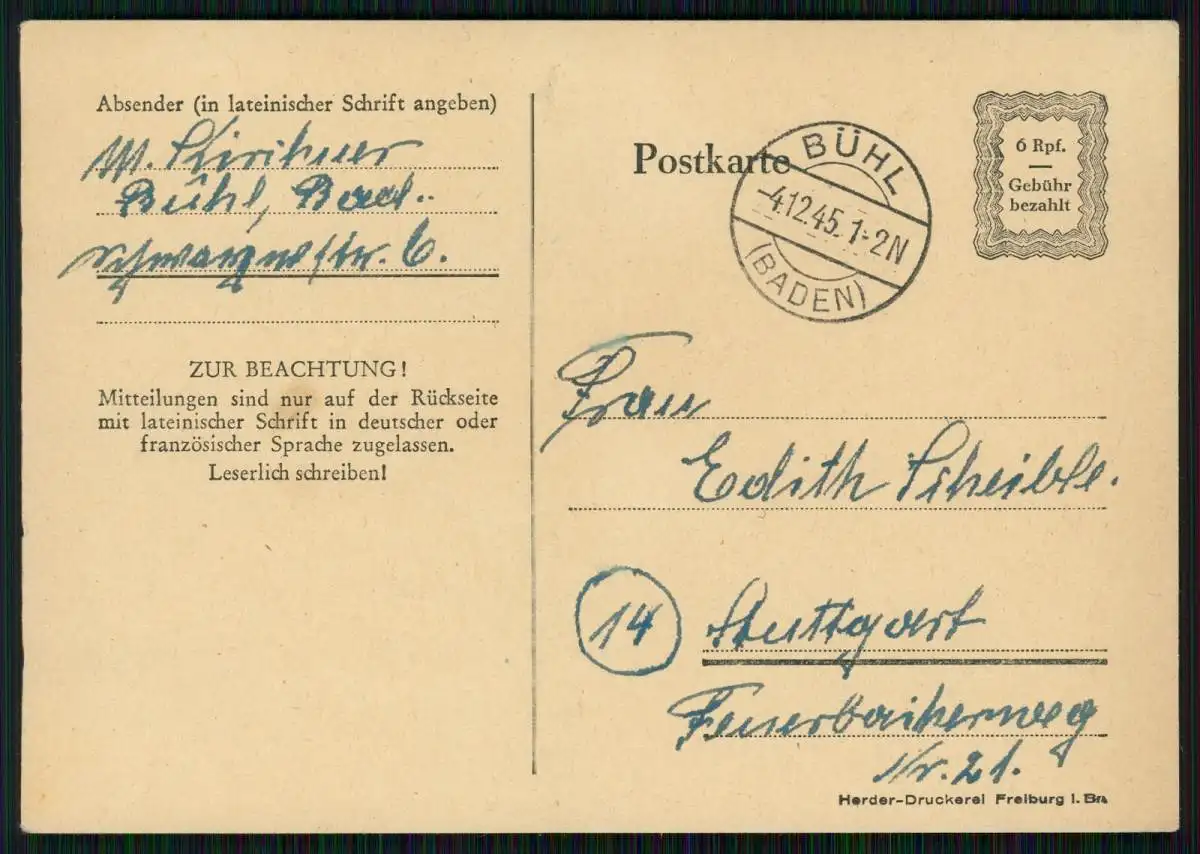 Absender (in lateinischer Schrift angeben)
Kirchner
Bühl, Bad.
6.
ZUR BEACHTUNG!
Mitteilungen sind nur auf der Rückseite
mit lateinischer Schrift in deutscher oder
französischer Sprache zugelassen.
Leserlich schreiben!
Postkarte
BÜHL
-4.12.45. 1-2N
(BADEN)
6 Rpf.
Gebühr
bezahlt
Frau
Edith Scheible.
14 Stuttgart
Feuerbacherweg
Nr. 21.
Herder-Druckerei Freiburg i. Br.